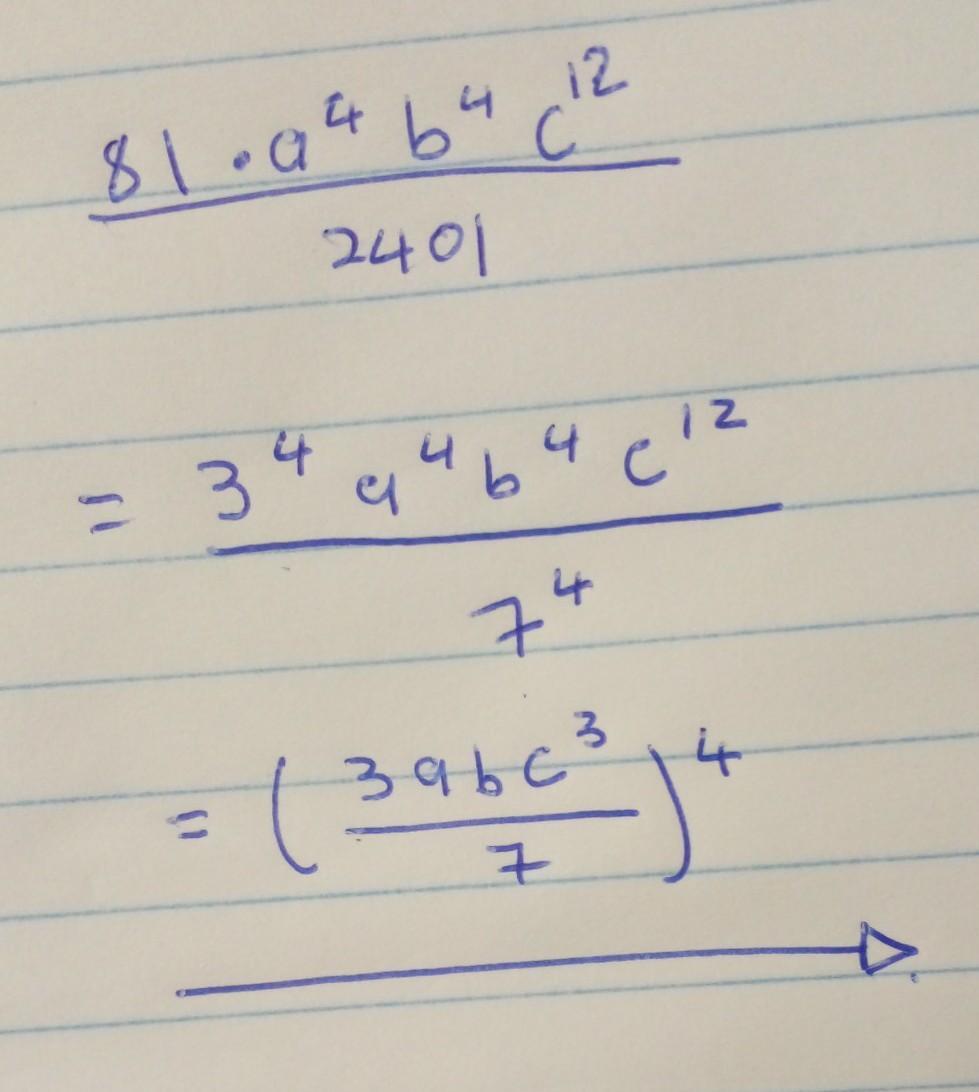 81 · a⁴ b⁴ c¹²
2401
= 3⁴ a⁴ b⁴ c¹²
7⁴
= (3abc³ / 7)⁴